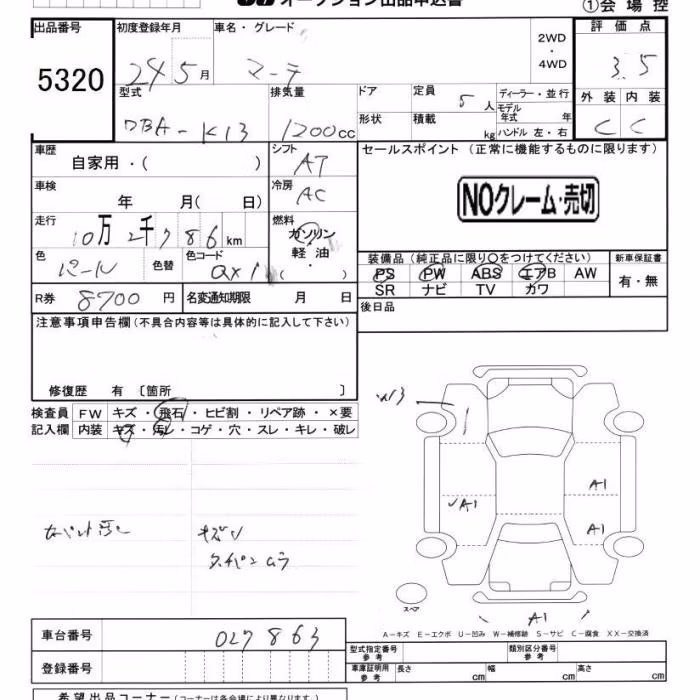 オークション出品申込書
①会場控
出品番号 初度登録年月 車名・グレード 2WD・4WD 評価点
5320 24 5月 マーチ 3.5
型式 排気量 ドア 定員 人 ディーラー・並行 外装 内装
DBA-K13 1200cc 5 C C
形状 積載 kg モデル年式 年 ハンドル 左・右
車歴 シフト セールスポイント(正常に機能するものに限ります)
自家用・( ) AT
車検 冷房 NOクレーム・売切
年 月( 日) AC
走行 燃料
10万2千786km ガソリン
軽油
・
( )
色 色替 色コード 装備品(純正品に限り○をつけてください) 新車保証書
パール QX1 PS PW ABS エアB AW 有・無
SR ナビ TV カワ
R券 8700円 名変通知期限 月 日 後日品
注意事項申告欄(不具合内容等は具体的に記入して下さい)
修復歴 有 〔箇所 〕
検査員 FW キズ・飛石・ヒビ割・リペア跡・×要
記入欄 内装 キズ・汚レ・コゲ・穴・スレ・キレ・破レ
W3
A1
A1 A1
キズ
スペア
A1
A-キズ E-エクボ U-凹み W-補修跡 S-サビ C-腐食 XX-交換済
車台番号 027863 型式指定番号 参考 類別区分番号 参考
登録番号 車庫証明用 参考 長さ cm 幅 cm 高さ cm
希望出品コーナー(コーナーは各会場により異なります)